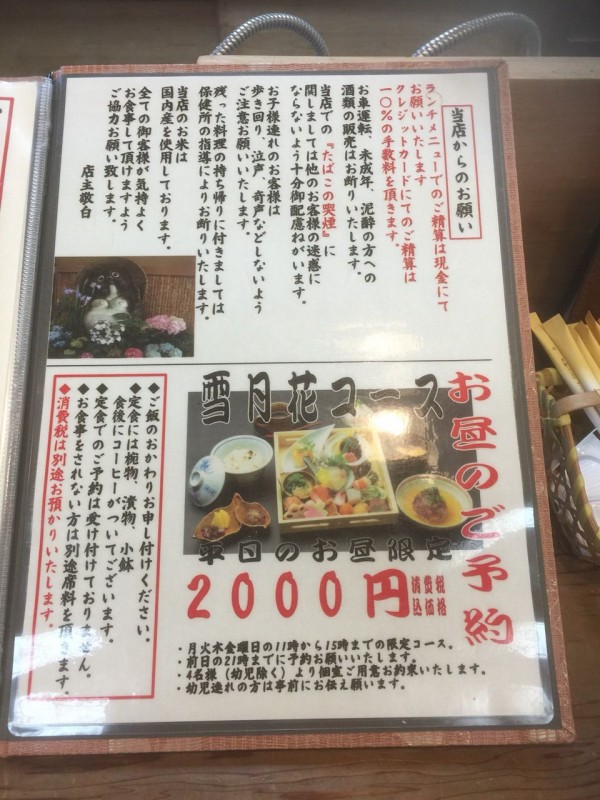 当店からのお願い
ランチメニューでのご精算は現金にて
お願いいたします
クレジットカードにてのご精算は
一〇％の手数料を頂きます。
お車運転、未成年、泥酔の方への
酒類の販売はお断りいたします。
当店での『たばこの喫煙』に
関しましては他のお客様の迷惑に
ならないよう十分御配慮ねがいます。
お子様連れのお客様は
歩き回り、泣声、奇声などしないよう
ご注意お願いいたします。
残った料理の持ち帰りに付きましては
保健所の指導によりお断りいたします。
当店のお米は
国内産を使用しております。
全ての御客様が気持よく
お食事して頂けますよう
ご協力お願い致します。
店主敬白
お昼のご予約
雪月花コース
平日のお昼限定
2000円
消費税
込価格
・月火木金曜日の11時から15時までの限定コース。
・前日の21時までに予約お願いいたします。
・4名様（幼児除く）より個室ご用意お約束いたします。
・幼児連れの方は事前にお伝え願います。
◆ご飯のおかわりお申し付けください。
◆定食には椀物、漬物、小鉢
食後にコーヒーがついてございます。
◆定食でのご予約は受け付けておりません。
◆お食事をされない方は別途席料を頂きます。
◆消費税は別途お預かりいたします。